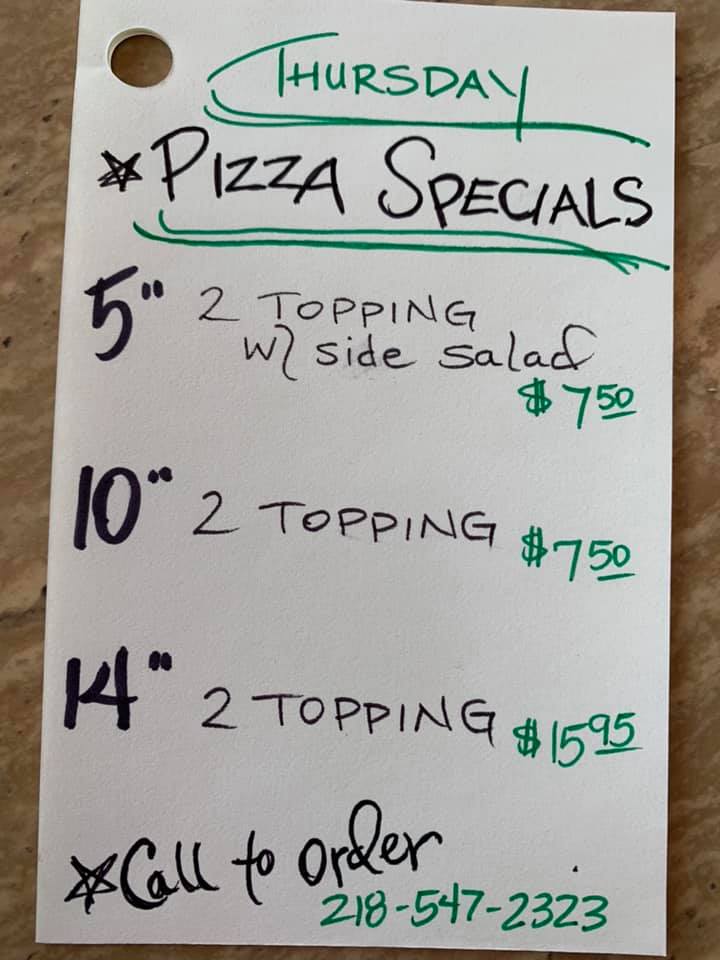 THURSDAY
☆ PIZZA SPECIALS
5" 2 TOPPING
w/ side salad
$7.50
10" 2 TOPPING $7.50
14" 2 TOPPING $15.95
☆ Call to order
218-547-2323